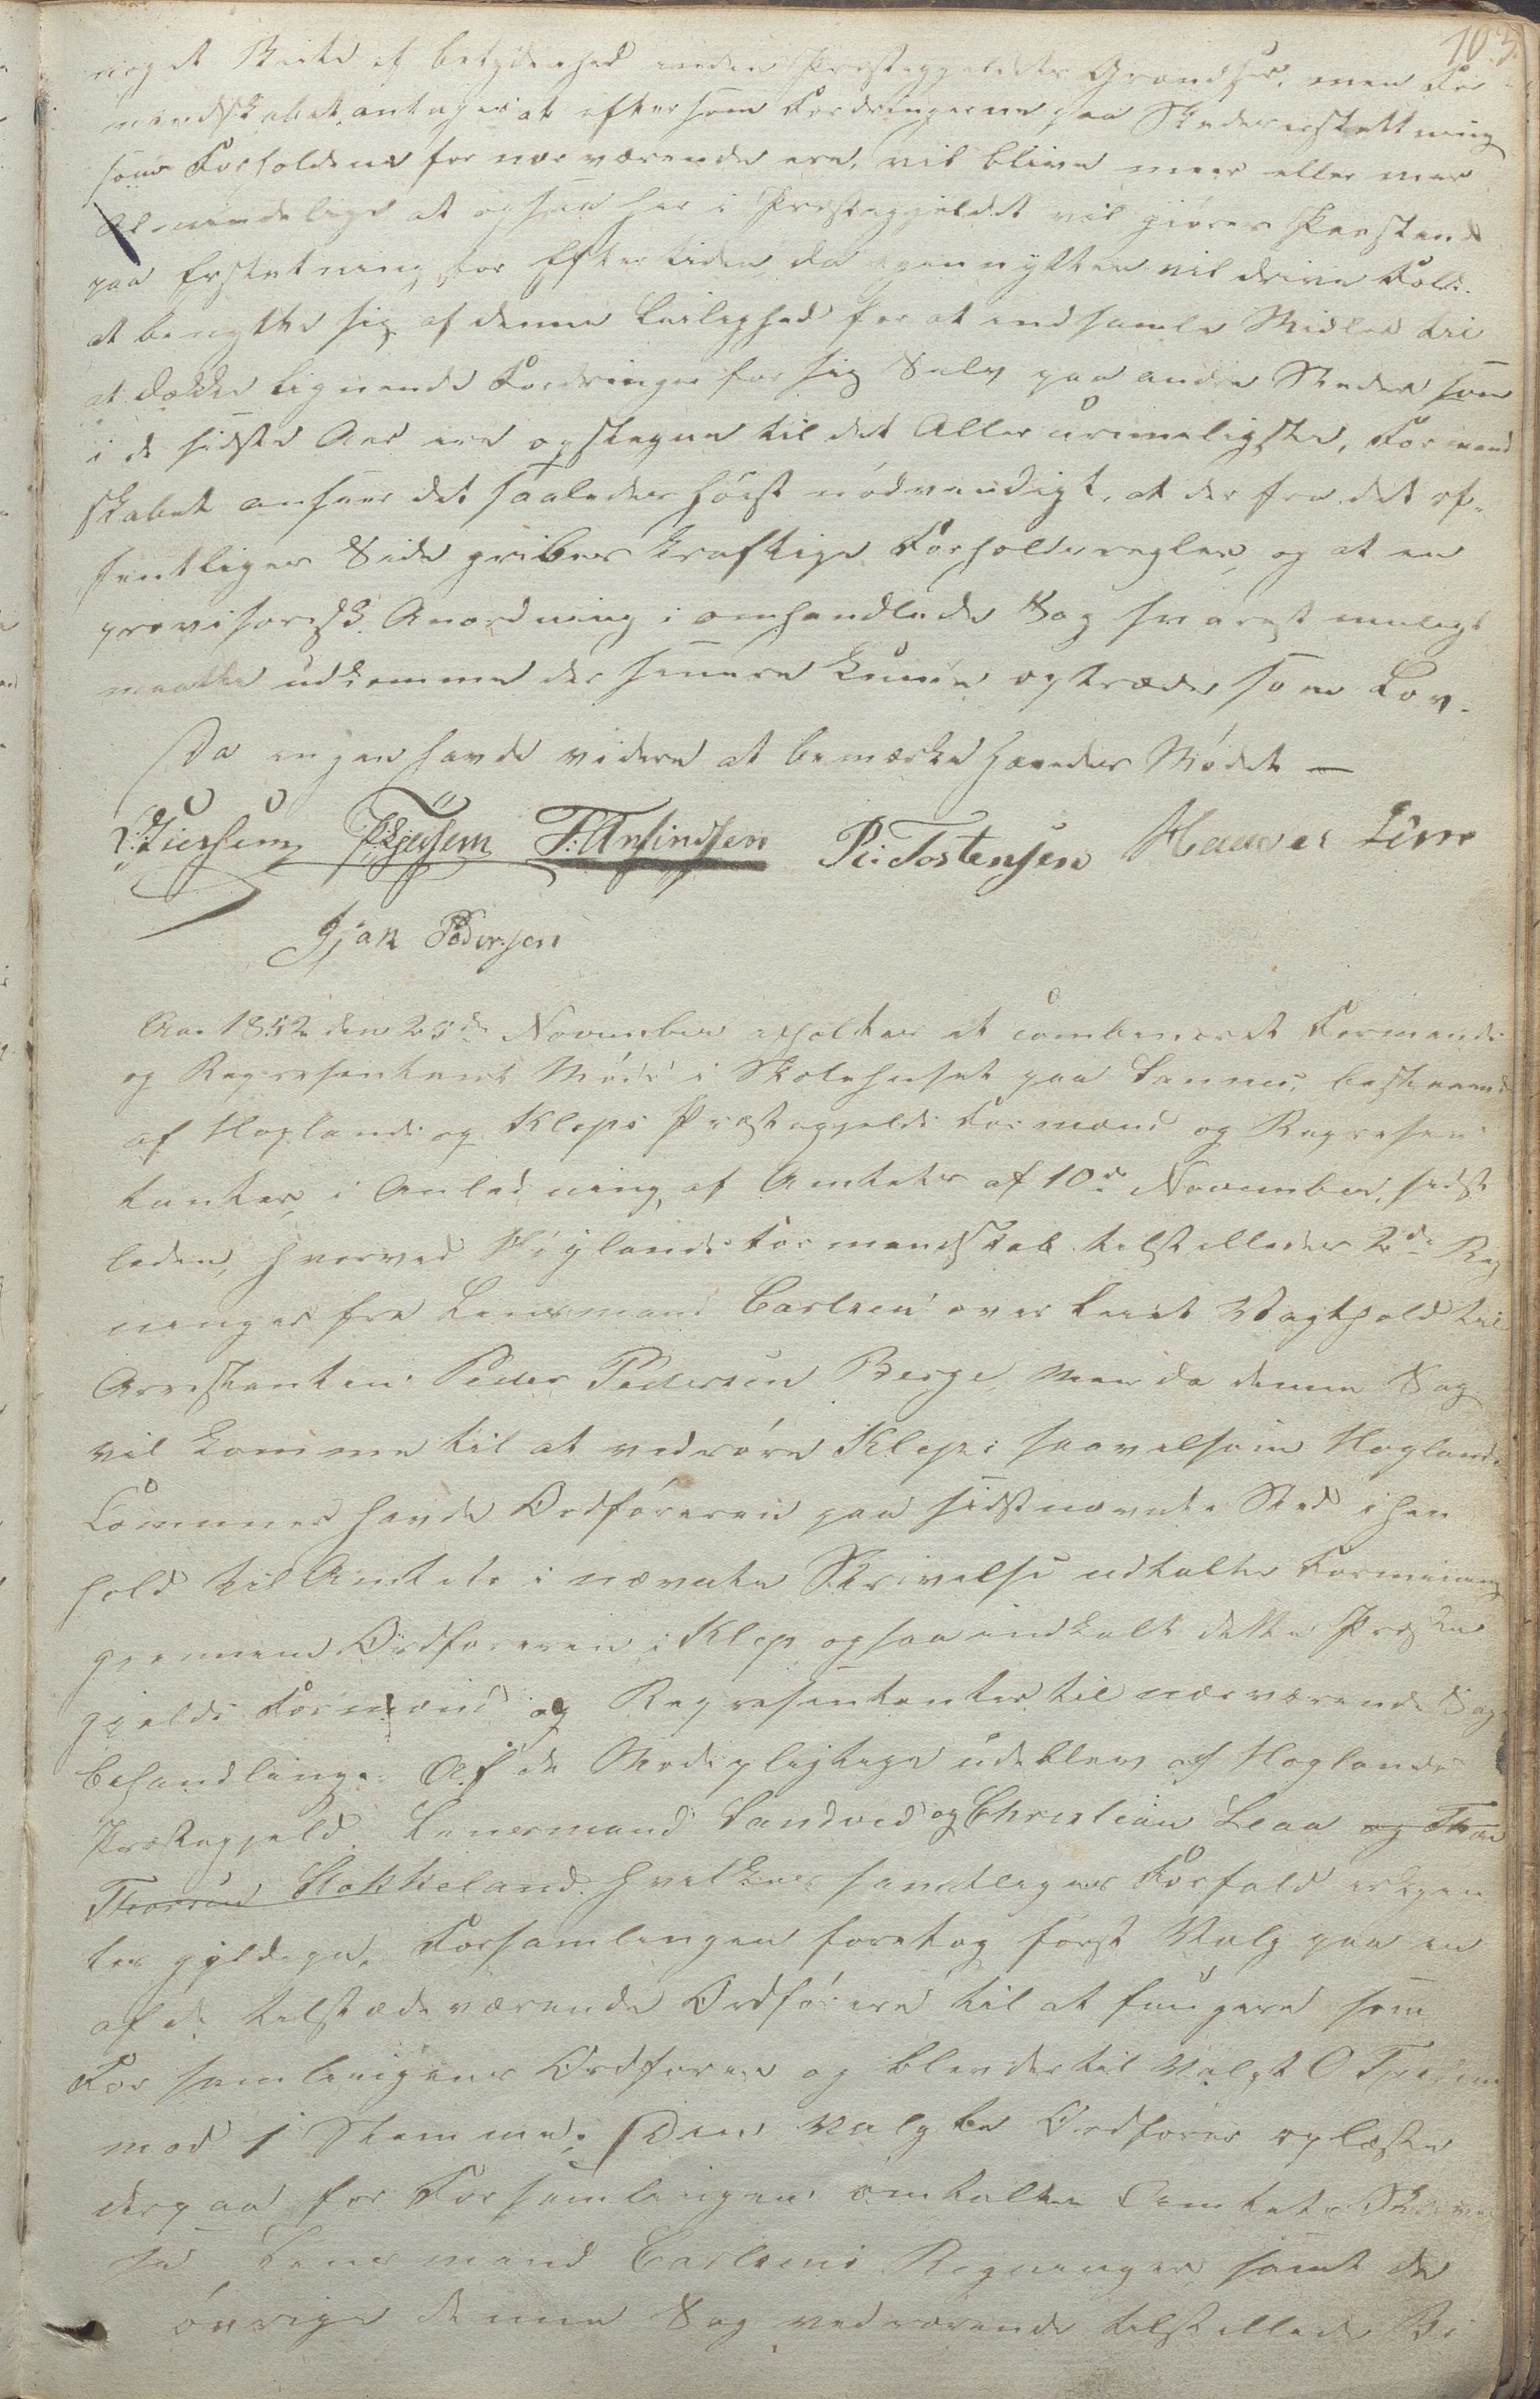 103.
noget Strekt af betydenhed inden Præstegjeldets Grændser, men For-
mandskabet antager at eftersom Fordringerne paa Skadeserstatning
som Forholdene for nærværende ere, vil blive meer eller mer
Almindelige at ogsaa her i Præstegjeldet vil giøres Paastand
paa Erstatning for Eftertiden, da egennytten vil drive Folk
at benytte sig af denne Leilighed for at indsamle Midler til
at dække lignende Fordringer for sig Selv paa andre Steder som
i de sidste Aar ere opstegne til det Aller urimeligste, Formand
skabet anseer det saaledes høist nødvendigt, at der fra det of-
fentliges Side gribes kraftige Forholdsregler, og at en
provisorisk Anordning i omhandlede Sag snarest muligt
maatte udkomme der senere kunne optræde som Lov.
Da ingen havde videre at bemærke hævedes Mødet —
O: Tjersem T: Arfindsen P: Tostensen
Gjan Pedersen
Aar 1852 den 25de November afholtes et combineret Formands
og Representant Møde i Skolehuset paa Sannes, bestaaend
af Høylands og Kleps Præstegjelds Formænd og Represen
tanter, i Anledning af Amtets af 10de November sidst
leden, hvorved Høylands Formandskab tilstilledes 2de Reg
ninger fra Lensmand Carlsen over Leiet Vagthold til
Arrestanten Peder Pedersen Berge, Men da denne Sag
vil komme til at vedrøre Kleps saavelsom Høylands
Communer havde Ordføreren paa sidstnævnte Sted i hen
hold til Amtets i nævnte Skrivelse udtalte Formening
gjennem Ordføreren i Klep ogsaa indkalt dette Præste
gjelds Formænd og Representanter til nærværende Sags
behandling. Af de Mødepligtige udeblev af Høylands
Præstegjeld Lensmand Sandved og Christian Leaa og Thore
Thorsen Stokkeland hvilkes samtliges Forfald erkjen
tes gyldige. Forsamlingen foretog først Valg paa en
af de tilstædeværende Ordførere til at fungere som
Forsamlingens Ordfører og blev dertil Valgt O Tjersem
mod 1 Stemme. Den Valgte Ordfører oplæste
derpaa for Forsamlingen omtalte Amtets Skrivel
se Lensmand Carlsens Regninger samt de
øvrige denne Sag vedrørende tilstillede Bi